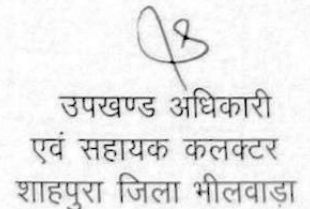 उपखण्ड अधिकारी
एवं सहायक कलक्टर
शाहपुरा जिला भीलवाड़ा